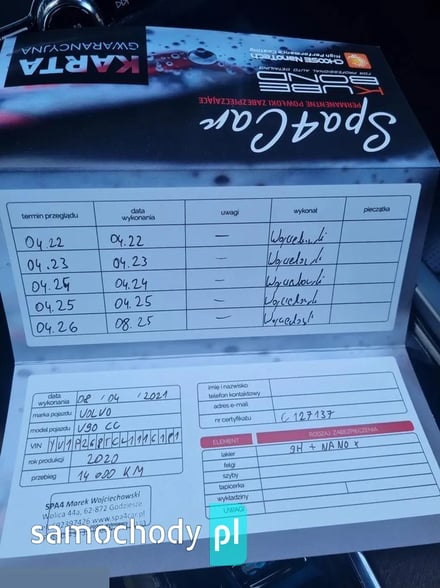 KARTA
GWARANCYJNA
CHOOSE NanoTech
High Performance Coating
KUBE
BOND
FOR PROFESSIONAL AUTO DETAILING
PERMANENTNE POWŁOKI ZABEZPIECZAJĄCE
Spa4Car
termin przeglądu data wykonania uwagi wykonał pieczątka
04.22 04.22 —
04.23 04.23 —
04.24 04.24 —
04.25 04.25 —
04.26 08.25 —
data wykonania 08/04/2021
marka pojazdu VOLVO
model pojazdu V90 CC
VIN
rok produkcji 2020
przebieg 14 000 KM
SPA4 Marek Wojciechowski
Wolica 44a, 62-872 Godziesze
www.spa4car.pl
imię i nazwisko
telefon kontaktowy
adres e-mail
nr certyfikatu C 127137
ELEMENT RODZAJ ZABEZPIECZENIA
lakier 9H + NANO x
felgi
szyby
tapicerka
wykładziny
UWAGI
samochody pl